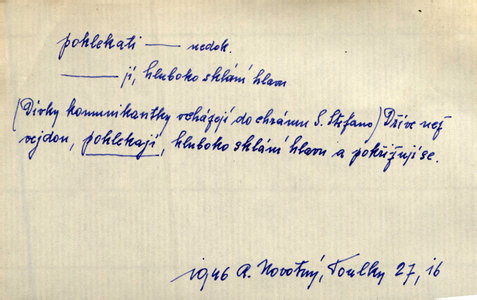 poklekati — nedok.
— jí, hluboko sklání hlavu
(Dívky komunikantky vcházejí do chrámu S. Stefano) Dříve než
vejdou, poklekají, hluboko sklání hlavu a pokřižují se.
1946 A. Novotný, Toulky 27, 16